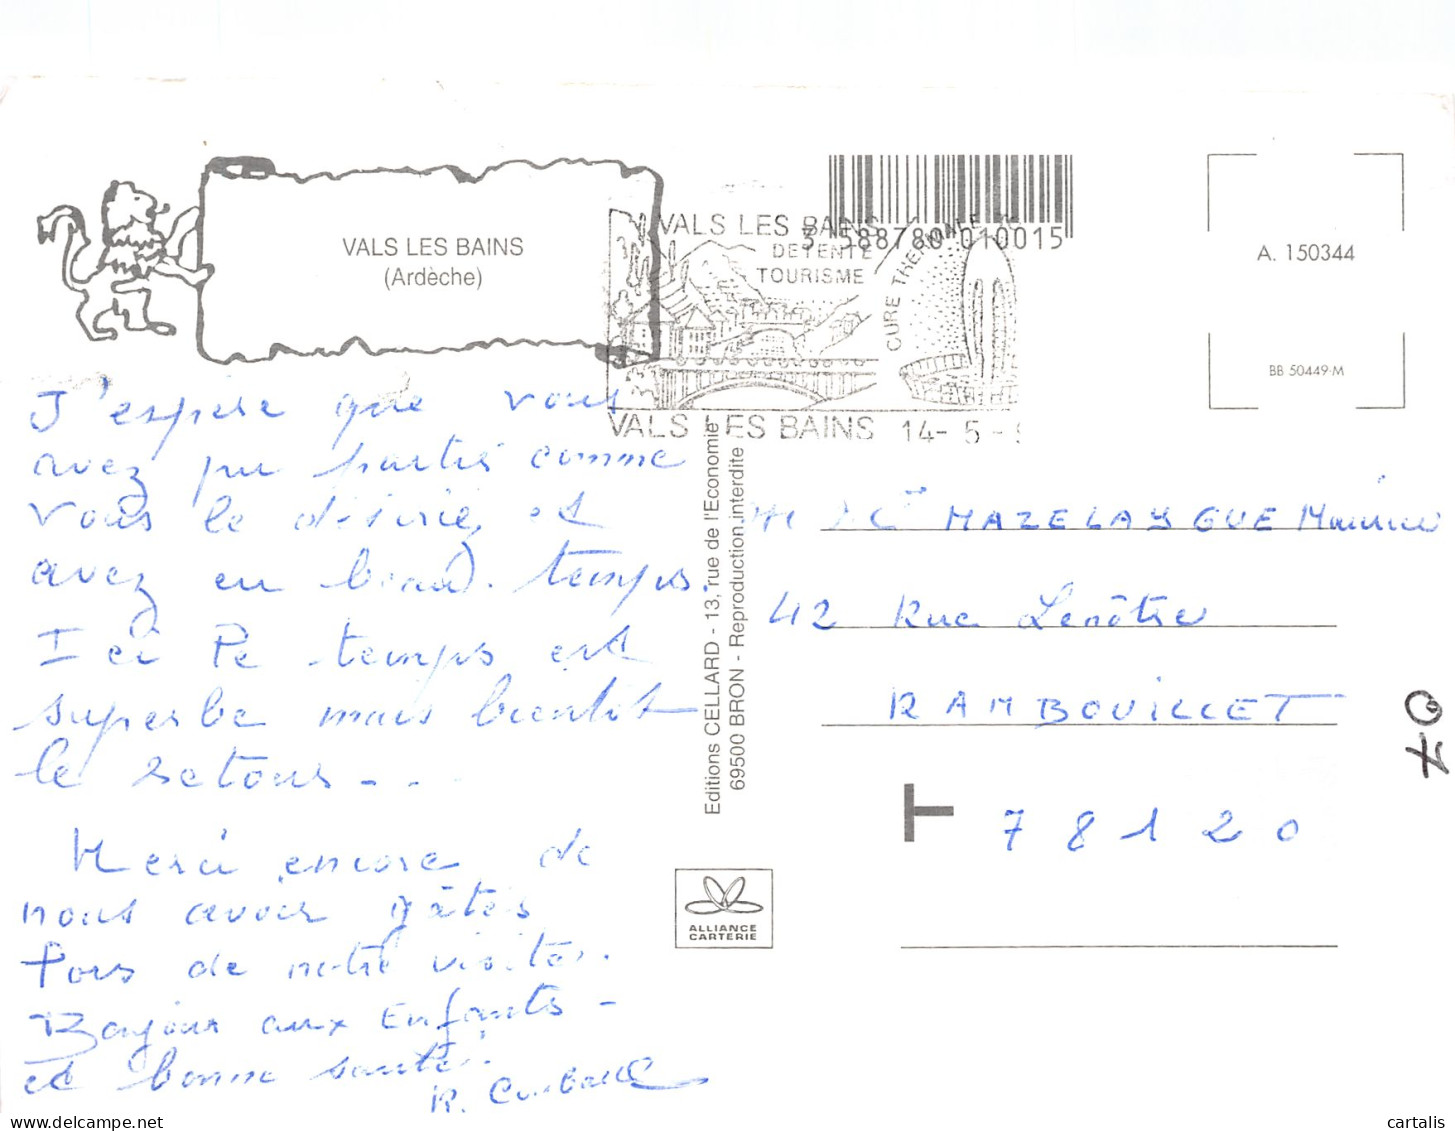 VALS LES BAINS
(Ardèche)
VALS LES BAINS
DETENTE
TOURISME
CURE THERMALE
VALS LES BAINS 14-5-
3 588780 010015
A. 150344
BB 50449·M
J'espère que vous
avez pu partir comme
vous le désiriez et
avez eu beau temps.
Ici le temps est
superbe mais bientôt
le retour - - -
Merci encore de
nous avoir gâtés
lors de notre visite.
Bonjour aux Enfants -
et bonne santé.
R.
Editions CELLARD - 13, rue de l'Economie
69500 BRON - Reproduction interdite
MAZELAYGUE Maurice
42 Rue Lenôtre
RAMBOUILLET
T 78120
ALLIANCE
CARTERIE
07
cartalis